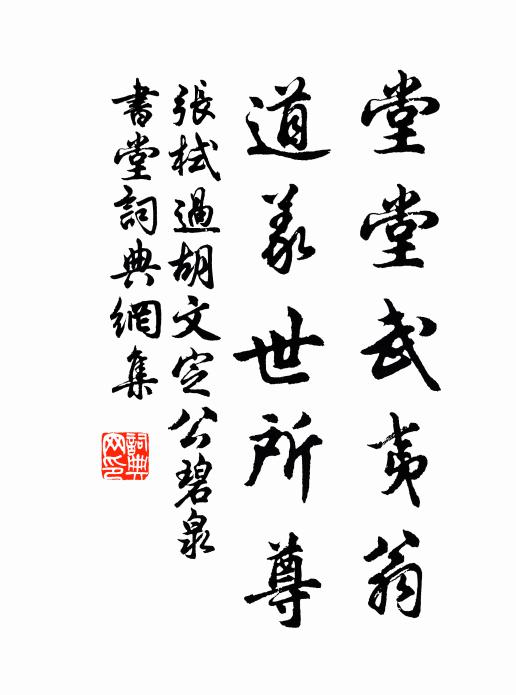 堂堂武夷翁
道義世所尊
張栻過胡文定公碧泉
書堂詞典網集
詞典
网印